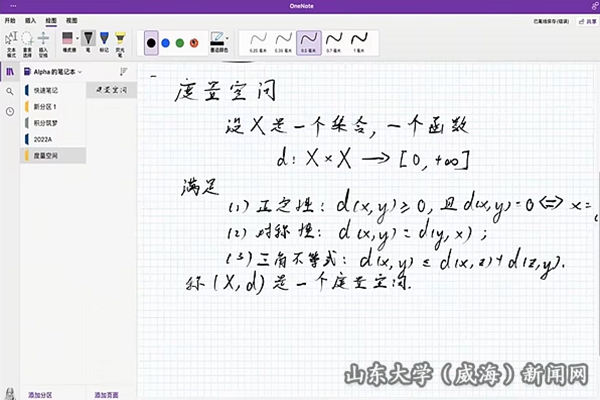 OneNote
开始 插入 绘图 视图
文本模式 套索选择 插入空格 橡皮擦 笔 标记 荧光笔 墨迹颜色 0.25 毫米 0.35 毫米 0.5 毫米 0.7 毫米 1 毫米
Alpha 的笔记本
快速笔记
新分区 1
积分筑梦
2022A
度量空间
度量空间
度量空间
设 X 是一个集合, 一个函数
d: X × X → [0, +∞]
满足
(1) 正定性: d(x,y) ≥ 0, 且 d(x,y) = 0 <=> x =
(2) 对称性: d(x,y) = d(y,x);
(3) 三角不等式: d(x,y) ≤ d(x,z) + d(z,y).
称 (X,d) 是一个度量空间.
添加分区 添加页面
山东大学（威海）新闻网